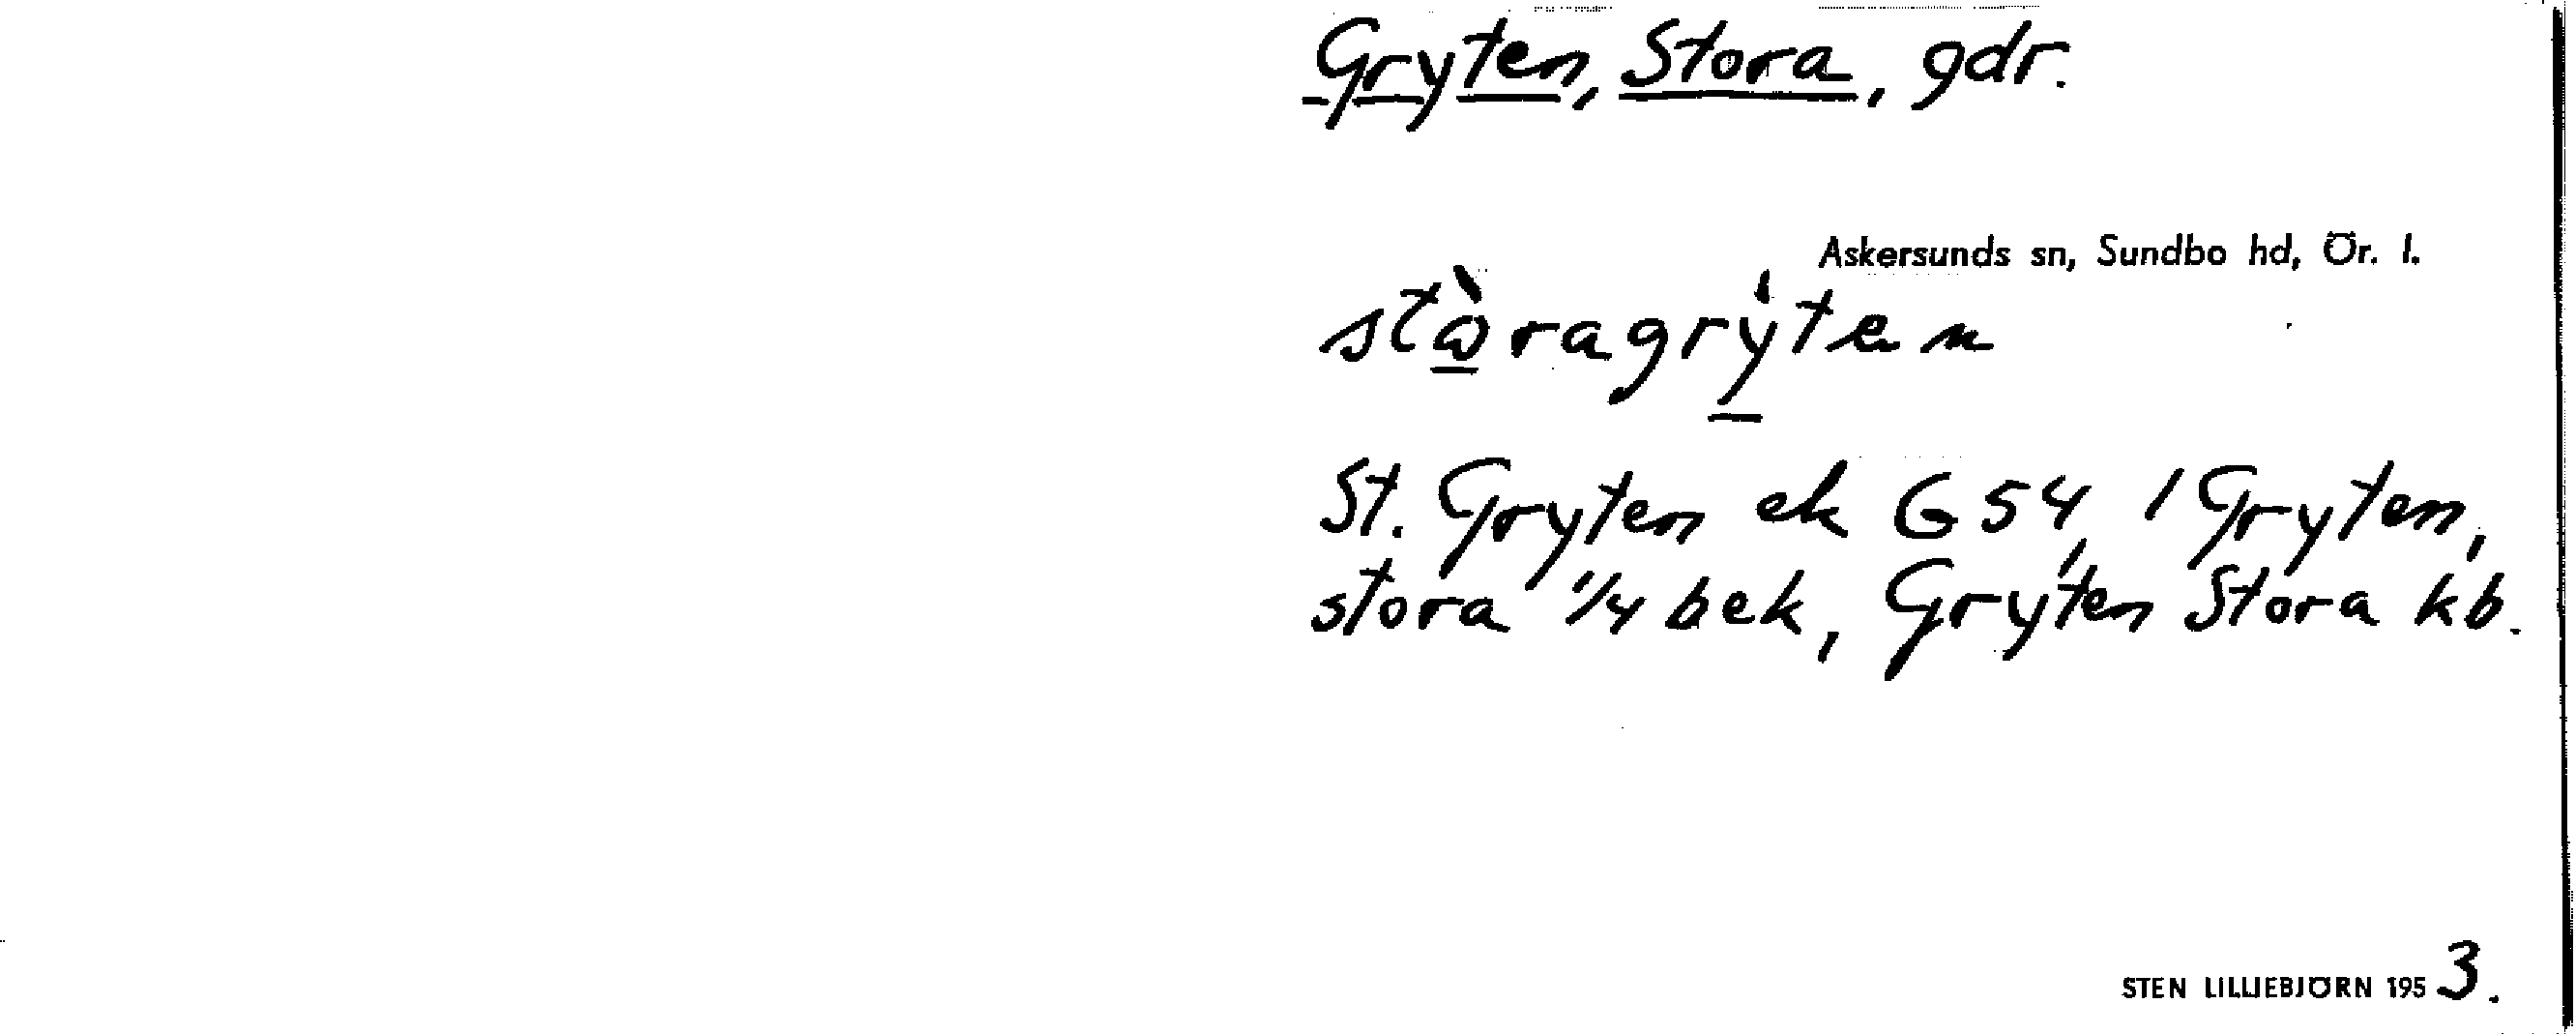 Gryten, Stora, gdr.
Askersunds sn, Sundbo hd, Ör. l.
stòragrýten
St. Gryten ek G 54, 1 Gryten,
stora 1/4 bek, Gryten Stora kb.
STEN LILLIEBJÖRN 1953.